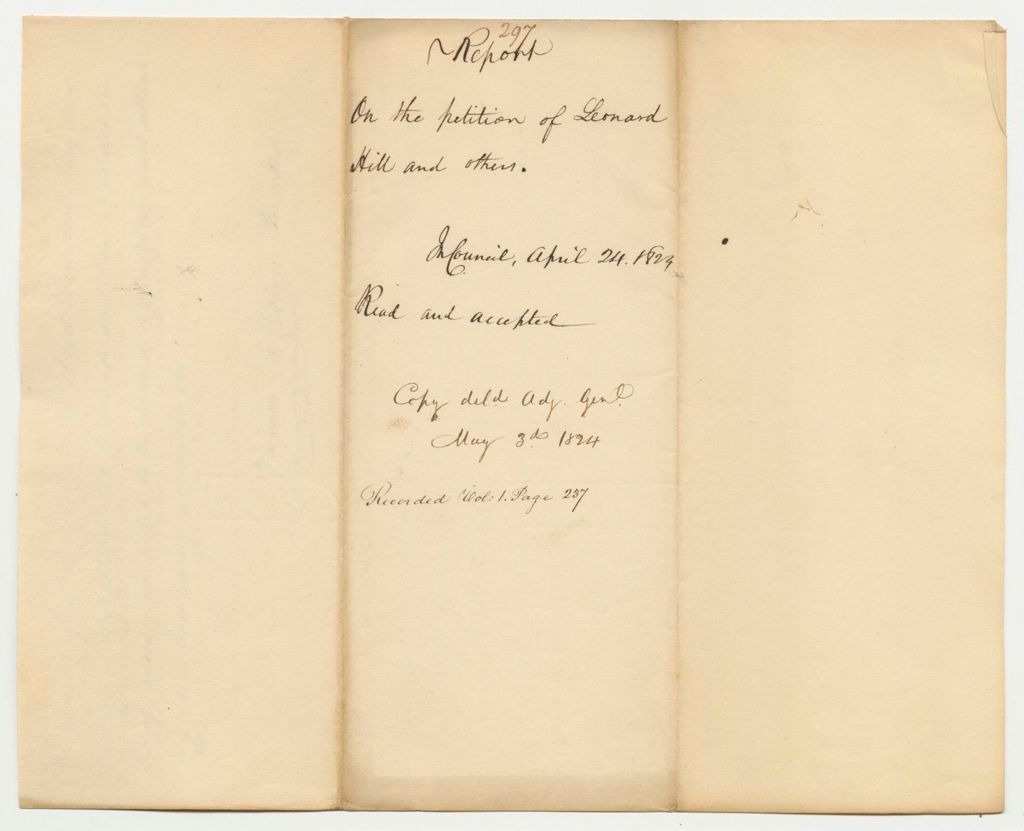 297
Report
On the petition of Leonard
Hill and others.
In Council, April 24. 1824
Read and accepted
Copy deld. Adj. Genl.
May 3d 1824
Recorded Vol: 1. Page 237